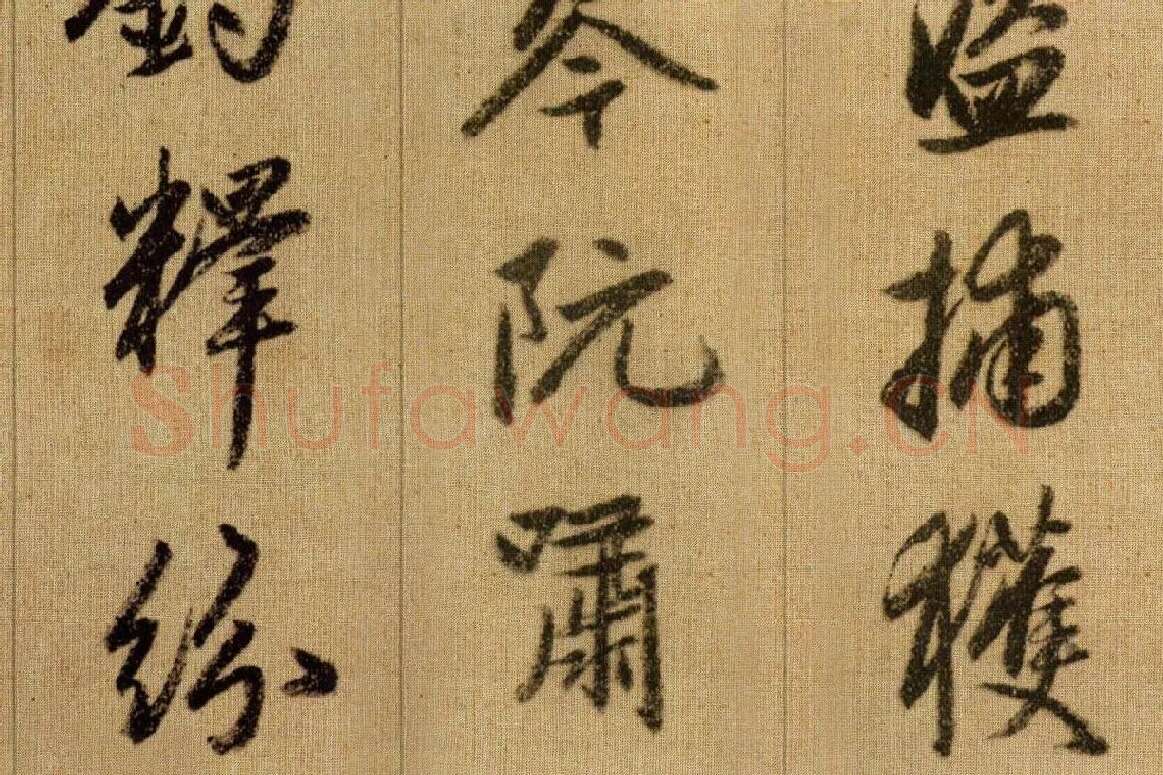 盗捕獲
琴阮嘯
鈞釋紛
Shufawang.CN